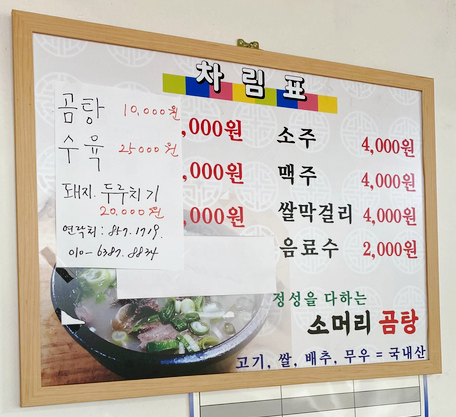 차림표
곰탕 10,000원
수육 25000원
돼지 두루치기
20.000원
연락처: 857.1719.
010-6387.8834
,000원
,000원
,000원
소주 4,000원
맥주 4,000원
쌀막걸리 4,000원
음료수 2,000원
정성을 다하는
소머리 곰탕
고기, 쌀, 배추, 무우 = 국내산